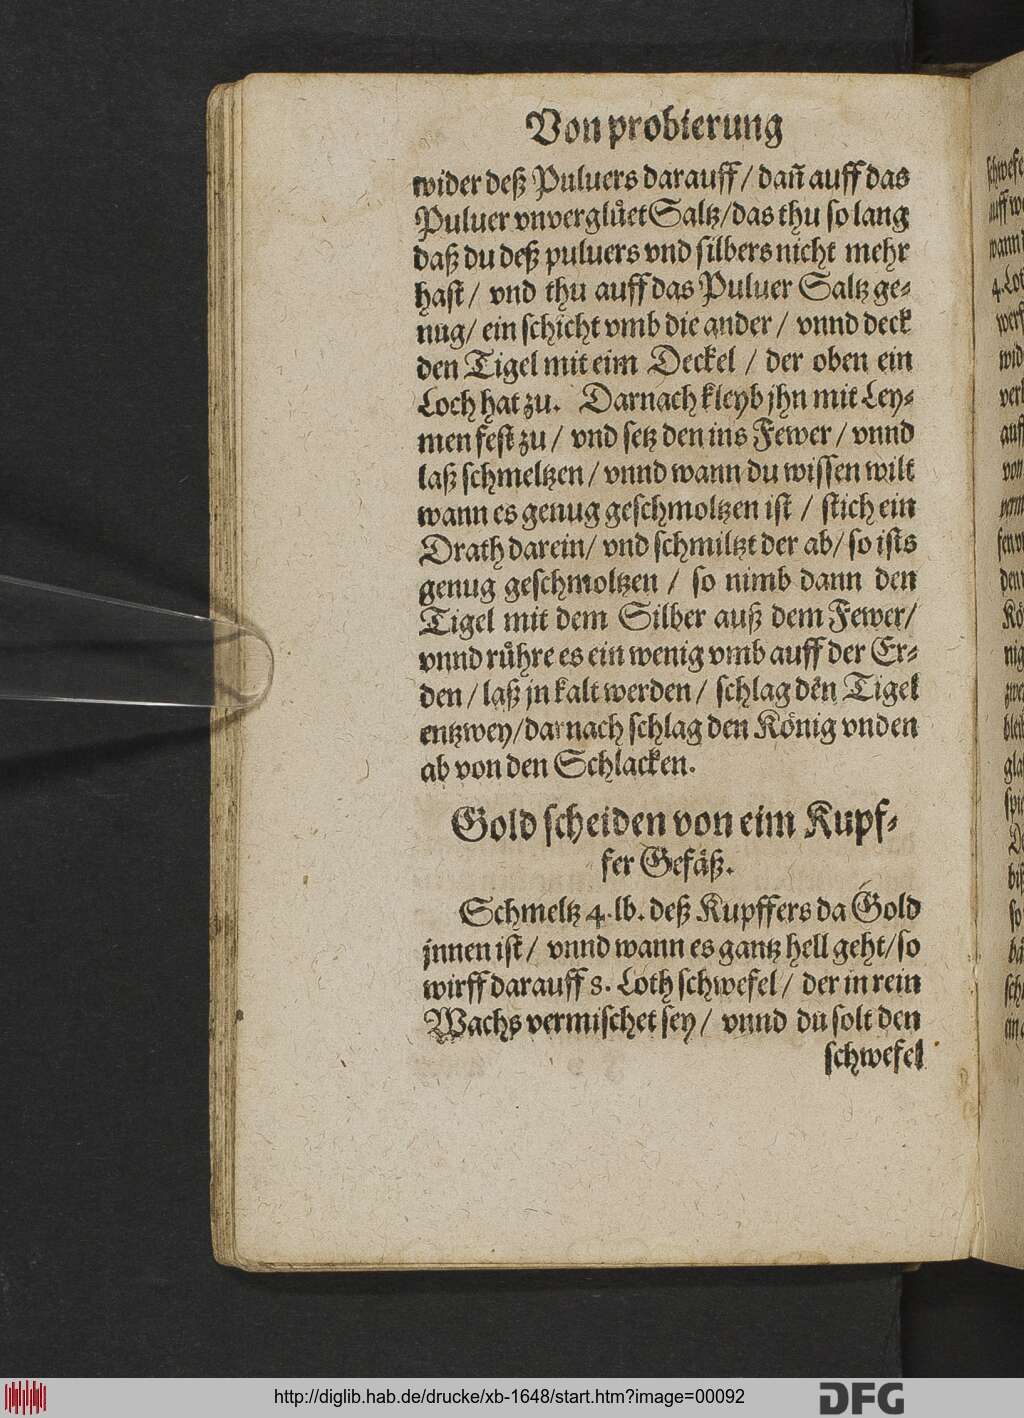 Von probierung
wider deß Puluers darauff / dañ auff das
Puluer vnverglůet Saltz / das thu so lang
daß du deß puluers vnd silbers nicht mehr
hast / vnd thu auff das Puluer Saltz ge-
nug / ein schicht vmb die ander / vnnd deck
den Tigel mit eim Deckel / der oben ein
Loch hat zu. Darnach kleyb jhn mit Ley-
men fest zu / vnd setz den ins Fewer / vnnd
laß schmeltzen / vnnd wann du wissen wilt
wann es genug geschmoltzen ist / stich ein
Drath darein / vnd schmiltzt der ab / so ists
genug geschmoltzen / so nimb dann den
Tigel mit dem Silber auß dem Fewer /
vnnd růhre es ein wenig vmb auff der Er-
den / laß jn kalt werden / schlag den Tigel
entzwey / darnach schlag den König vnden
ab von den Schlacken.
Gold scheiden von eim Kupf-
fer Gefäß.
Schmeltz 4. lb. deß Kupffers da Gold
jnnen ist / vnnd wann es gantz hell geht / so
wirff darauff 8. Loth schwefel / der in rein
Wachs vermischet sey / vnnd du solt den
schwefel
http://diglib.hab.de/drucke/xb-1648/start.htm?image=00092
DFG